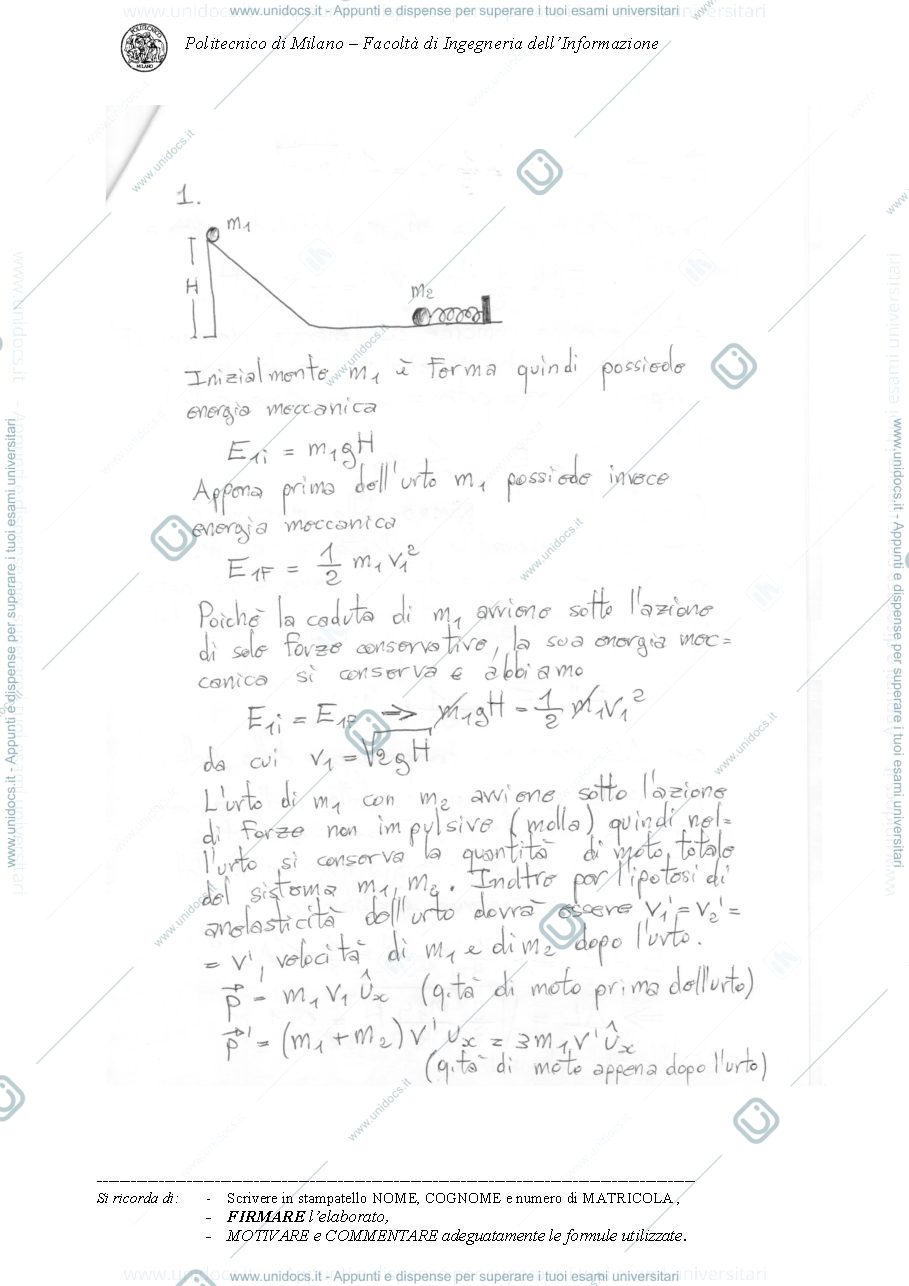 www.unidocs.it - Appunti e dispense per superare i tuoi esami universitari
Politecnico di Milano – Facoltà di Ingegneria dell'Informazione
1.
m1
H
m2
Inizialmente m1 è ferma quindi possiede
energia meccanica
E1i = m1gH
Appena prima dell'urto m1 possiede invece
energia meccanica
E1F = 1/2 m1 v1²
Poichè la caduta di m1 avviene sotto l'azione
di sole forze conservative, la sua energia mec=
canica si conserva e abbiamo
E1i = E1F => m1gH = 1/2 m1v1²
da cui v1 = √2gH
L'urto di m1 con m2 avviene sotto l'azione
di forze non impulsive (molla) quindi nel=
l'urto si conserva la quantità di moto totale
del sistema m1, m2. Inoltre per l'ipotesi di
anelasticità dell'urto dovrà essere v1' = v2' =
= v', velocità di m1 e di m2 dopo l'urto.
p⃗ = m1 v1 ûx (q.tà di moto prima dell'urto)
p⃗' = (m1 + m2) v' ux = 3m1v' ûx
(q.tà di moto appena dopo l'urto)
Si ricorda di: - Scrivere in stampatello NOME, COGNOME e numero di MATRICOLA ,
- FIRMARE l'elaborato,
- MOTIVARE e COMMENTARE adeguatamente le formule utilizzate.
www.unidocs.it - Appunti e dispense per superare i tuoi esami universitari